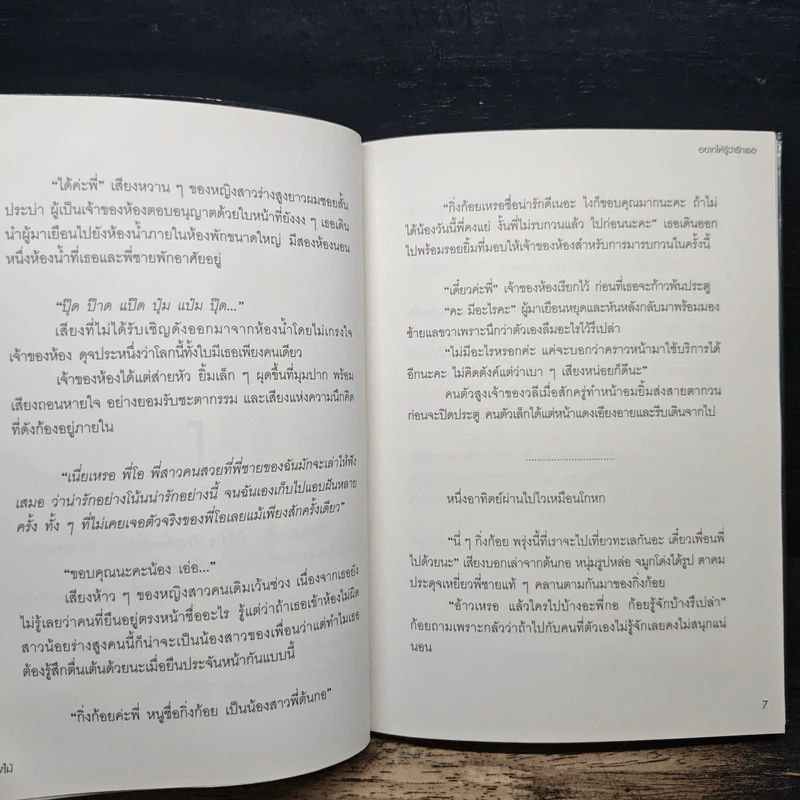 “ได้ค่ะพี่” เสียงหวาน ๆ ของหญิงสาวร่างสูงยาวผมซอยสั้น
ประบ่า ผู้เป็นเจ้าของห้องตอบอนุญาตด้วยใบหน้าที่ยังงง ๆ เธอเดิน
นำผู้มาเยือนไปยังห้องน้ำภายในห้องพักขนาดใหญ่ มีสองห้องนอน
หนึ่งห้องน้ำที่เธอและพี่ชายพักอาศัยอยู่
“ปุ๊ด ป๊าด แป๊ด ปุ๋ม แป๋ม ปุ๊ด...”
เสียงที่ไม่ได้รับเชิญดังออกมาจากห้องน้ำโดยไม่เกรงใจ
เจ้าของห้อง ดุจประหนึ่งว่าโลกนี้ทั้งใบมีเธอเพียงคนเดียว
เจ้าของห้องได้แต่ส่ายหัว ยิ้มเล็ก ๆ ผุดขึ้นที่มุมปาก พร้อม
เสียงถอนหายใจ อย่างยอมรับชะตากรรม และเสียงแห่งความนึกคิด
ที่ดังก้องอยู่ภายใน
“เนี่ยเหรอ พี่โอ พี่สาวคนสวยที่พี่ชายของฉันมักจะเล่าให้ฟัง
เสมอ ว่าน่ารักอย่างโน้นน่ารักอย่างนี้ จนฉันเองเก็บไปแอบฝันหลาย
ครั้ง ทั้ง ๆ ที่ไม่เคยเจอตัวจริงของพี่โอเลยแม้เพียงสักครั้งเดียว”
“ขอบคุณนะคะน้อง เอ่อ...”
เสียงห้าว ๆ ของหญิงสาวคนเดิมเว้นช่วง เนื่องจากเธอยัง
ไม่รู้เลยว่าคนที่ยืนอยู่ตรงหน้าชื่ออะไร รู้แต่ว่าถ้าเธอเข้าห้องไม่ผิด
สาวน้อยร่างสูงคนนี้ก็น่าจะเป็นน้องสาวของเพื่อนว่าแต่ทำไมเธอ
ต้องรู้สึกตื่นเต้นด้วยนะเมื่อยืนประจันหน้ากันแบบนี้
“กิ่งก้อยค่ะพี่ หนูชื่อกิ่งก้อย เป็นน้องสาวพี่ต้นกอ”
อยากให้รู้ว่ารักเธอ
“กิ่งก้อยเหรอชื่อน่ารักดีเนอะ ไงก็ขอบคุณมากนะคะ ถ้าไม่
ได้น้องวันนี้พี่คงแย่ งั้นพี่ไม่รบกวนแล้ว ไปก่อนนะคะ” เธอเดินออก
ไปพร้อมรอยยิ้มที่มอบให้เจ้าของห้องสำหรับการมารบกวนในครั้งนี้
“เดี๋ยวค่ะพี่” เจ้าของห้องเรียกไว้ ก่อนที่เธอจะก้าวพ้นประตู
“คะ มีอะไรคะ” ผู้มาเยือนหยุดและหันหลังกลับมาพร้อมมอง
ซ้ายแลขวาเพราะนึกว่าตัวเองลืมอะไรไว้รึเปล่า
“ไม่มีอะไรหรอกค่ะ แค่จะบอกว่าคราวหน้ามาใช้บริการได้
อีกนะคะ ไม่คิดตังค์แต่ว่าเบา ๆ เสียงหน่อยก็ดีนะ”
คนตัวสูงเจ้าของวลีเมื่อสักครู่ทำหน้าอมยิ้มส่งสายตากวน
ก่อนจะปิดประตู คนตัวเล็กได้แต่หน้าแดงเอียงอายและรีบเดินจากไป
..............................
หนึ่งอาทิตย์ผ่านไปไวเหมือนโกหก
“นี่ ๆ กิ่งก้อย พรุ่งนี้ที่เราจะไปเที่ยวทะเลกันอะ เดี๋ยวเพื่อนพี่
ไปด้วยนะ” เสียงบอกเล่าจากต้นกอ หนุ่มรูปหล่อ จมูกโด่งได้รูป ตาคม
ประดุจเหยี่ยวพี่ชายแท้ ๆ คลานตามกันมาของกิ่งก้อย
“อ้าวเหรอ แล้วใครไปบ้างอะพี่กอ ก้อยรู้จักบ้างรึเปล่า”
ก้อยถามเพราะกลัวว่าถ้าไปกับคนที่ตัวเองไม่รู้จักเลยคงไม่สนุกแน่
นอน
7